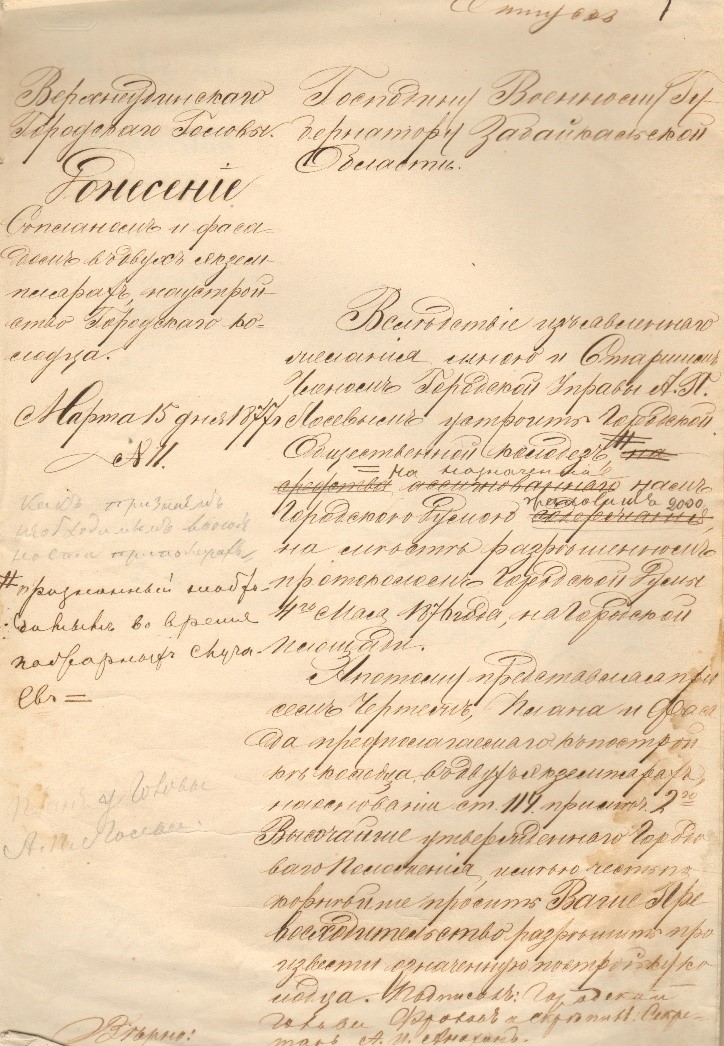 Отпускъ
Верхнеудинскаго
Городскаго Головы.
Донесеніе
Съ планомъ и фаса-
домъ въ двухъ экзем-
плярахъ, на устрой-
ство Городскаго ко-
лодца.
Марта 15 дня 1877 г.
№ 11.
какъ признанъ
необходимымъ
# признанный необхо-
димымъ во время
пожарныхъ случа-
евъ =
Планъ у Головы
А. П. Лосева.
Вѣрно:
Господину Военному Гу-
бернатору Забайкальской
Области.
Вслѣдствіе изъявленнаго
желанія мною и Старшимъ
Членомъ Городской Управы А. П.
Лосевымъ устроить Городской
Общественный колодезъ # на
на назначенныя
средства ассигнованнаго намъ
Городскою Думою 2000
на мѣстѣ разрѣшенномъ
протоколомъ Городской Думы
4го Мая 1876 года, на Городской
площади.
А потому представляя при
семъ Чертежъ, Плана и Фаса-
да предполагаемаго къ построй-
кѣ колодца, въ двухъ экземплярахъ,
на основаніи ст. 114 примѣч. 2го
Высочайше утвержденнаго Городо-
ваго Положенія, имѣю честь по-
корнѣйше просить Ваше Пре-
восходительство разрѣшить про-
извести означенную постройку ко-
лодца. Подписалъ: Городской
Голова Фроловъ и скрѣпилъ: Секре-
тарь А. П.